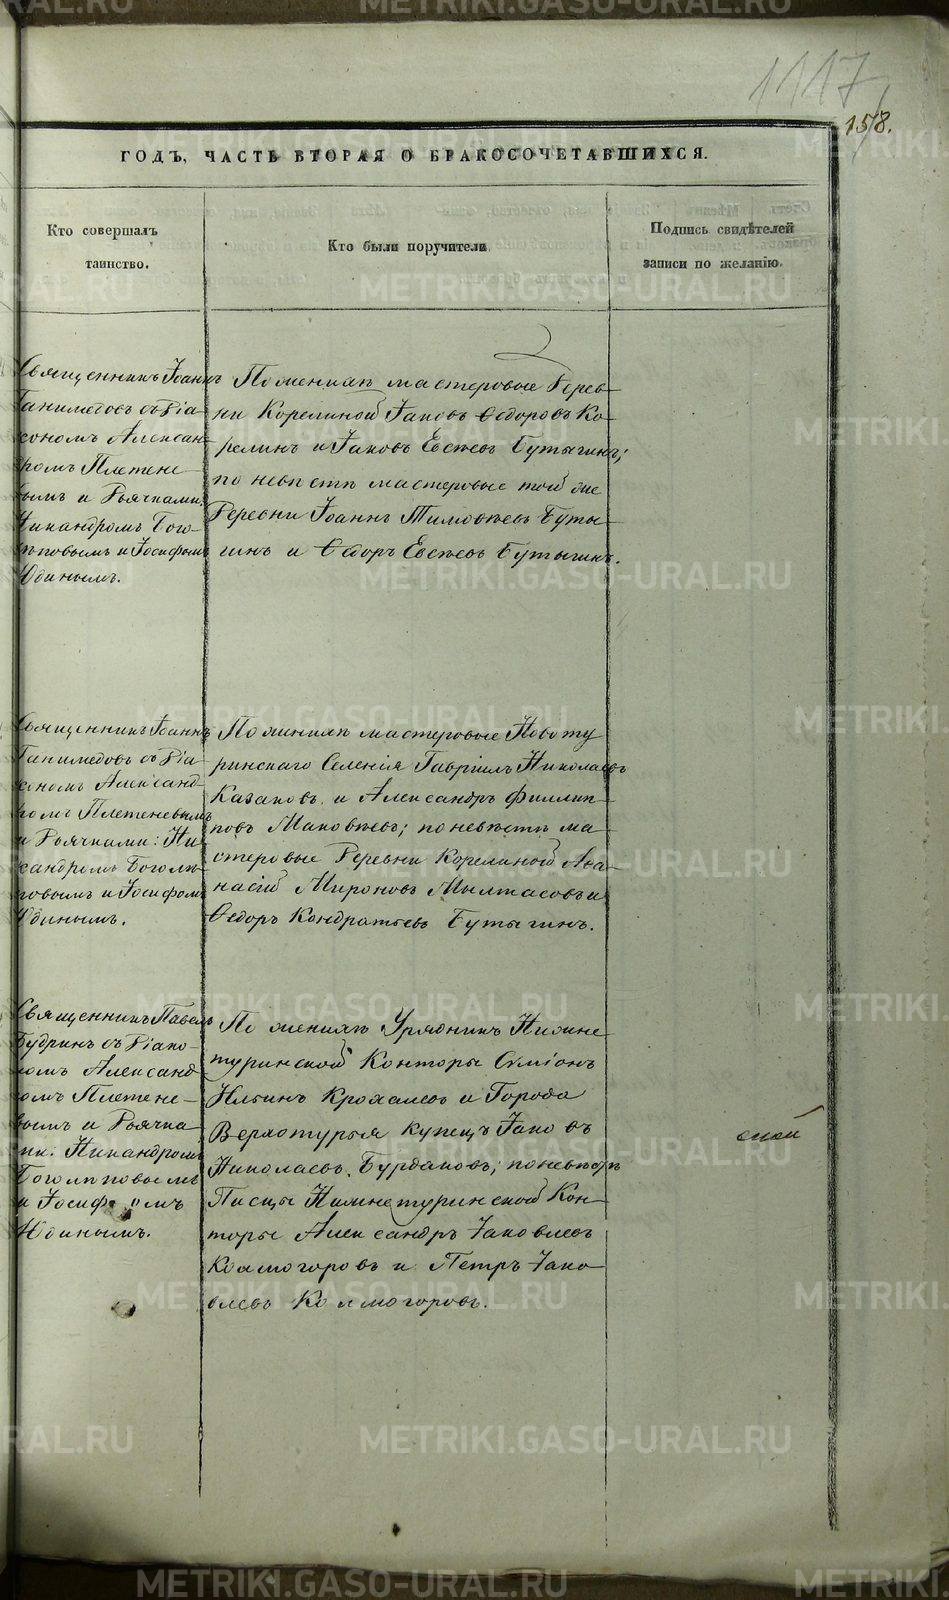 1117
158.
ГОДЪ, ЧАСТЬ ВТОРАЯ О БРАКОСОЧЕТАВШИХСЯ.
Кто совершалъ
таинство.
Кто были поручители
Подпись свидѣтелей
записи по желанію.
Священникъ Іоаннъ
Ганимедовъ съ Діа-
кономъ Алексан-
дромъ Плетене-
вымъ и Дьячками:
Никандромъ Бого-
лѣповымъ и Іосифомъ
Юдинымъ.
По женихѣ мастеровые Дерев-
ни Корелиной Іаковъ Ѳедоровъ Ко-
релинъ и Іаковъ Евсѣевъ Бутыгинъ;
по невѣстѣ мастеровые той же
Деревни Іоаннъ Тимоѳѣевъ Буты-
гинъ и Ѳедоръ Евсѣевъ Бутыгинъ.
Священникъ Іоаннъ
Ганимедовъ съ Діа-
кономъ Александ-
ромъ Плетеневымъ
и Дьячками: Ни-
кандромъ Боголѣ-
повымъ и Іосифомъ
Юдинымъ.
По женихѣ мастеровые Новоту
ринскаго Селенія Гавріилъ Николаевъ
Казаковъ и Александръ Филлип-
повъ Маковѣевъ; по невѣстѣ ма-
стеровые Деревни Корелиной Аѳа-
насій Мироновъ Мылтасовъ и
Ѳедоръ Кондратьевъ Бутыгинъ.
Священникъ Павелъ
Будринъ съ Діако-
номъ Александ
ромъ Плетене-
вымъ и Дьячка
ми: Никандромъ
Боголѣповымъ
и Іосифомъ
Юдинымъ.
По женихѣ Урядникъ Нижне-
туринской Конторы Симіонъ
Ильинъ Крохалевъ и Города
Верхотурья купецъ Іаковъ
Николаевъ Бурдаковъ; по невѣстѣ
Писцы Нижнетуринской Кон-
торы Александръ Іаковлевъ
Колмогоровъ и Петръ Іако-
влевъ Колмогоровъ.
METRIKI.GASO-URAL.RU